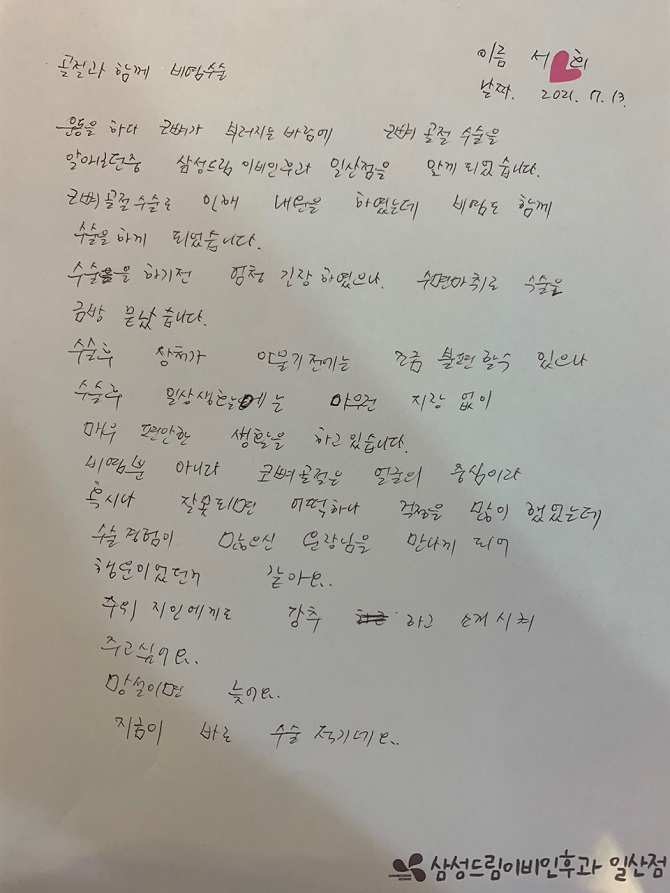 골절과 함께 비염수술
이름 서 희
날짜. 2021. 7. 13.
운동을 하다 코뼈가 부러지는 바람에 코뼈 골절 수술을
알아보던중 삼성드림 이비인후과 일산점을 알게 되었습니다.
코뼈 골절 수술로 인해 내원을 하였는데 비염도 함께
수술을 하게 되었습니다.
수술을 하기전 엄청 긴장 하였으나. 수면마취로 수술을
금방 끝났습니다.
수술후 상처가 아물기 전에는 조금 불편할수 있으나
수술후 일상생활에는 아무런 지장 없이
매우 편안한 생활을 하고있습니다.
비염뿐 아니라 코뼈골절은 얼굴의 중심이라
혹시나 잘못되면 어떡하나 걱정을 많이 했었는데
수술경험이 많으신 원장님을 만나게 되어
행운이었던거 같아요..
주위 지인에게도 강추 라고 소개시켜
주고싶어요..
망설이면 늦어요..
지금이 바로 수술 적기네요..
삼성드림이비인후과 일산점